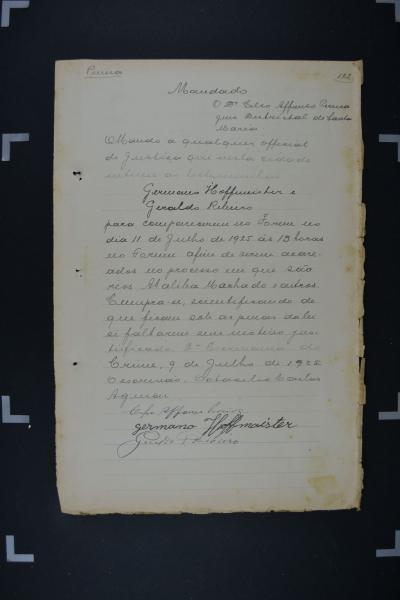 Pereira
122
Mandado
O Dr Celso Affonso Pereira
juiz Districtal de Santa
Maria
Mando a qualquer official
de Justiça que nesta cidade
intime as testemunhas
Germano Hoffmeister e
Geraldo Ribeiro
para comparecerem no Forum no
dia 11 de Julho de 1925 ás 13 horas
no Forum afim de serem acare-
ados no processo em que são
réos Ataliba Machado e outros.
Cumpra-se, scientificando de
que ficam sob as penas da lei
si faltarem sem motivo jus-
tificado. 2º Escrivania do
Crime, 9 de Julho de 1925
O escrivão, Carlos
Celso Affonso Pereira
germano Hoffmaister
Ribeiro